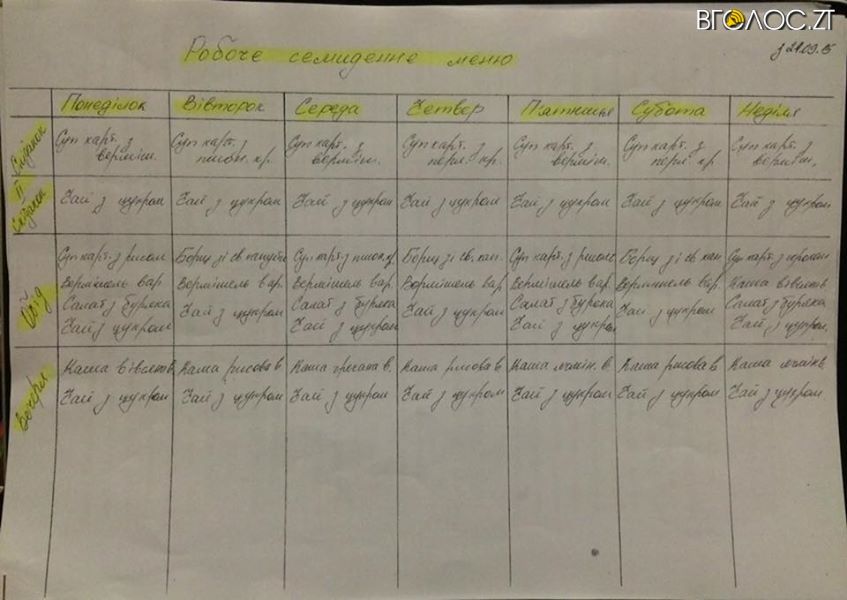 ВГОЛОС.ZT
Робоче семиденне меню
з 21.09.15
Понеділок Вівторок Середа Четвер П'ятниця Субота Неділя
Сніданок
Суп карт. з Суп карт. з Суп карт. з Суп карт. з Суп карт. з Суп карт. з Суп карт. з
верміш. пшон. кр. верміш. перл. кр. верміш. перл. кр. верміш.
II Сніданок
Чай з цукром Чай з цукром Чай з цукром Чай з цукром Чай з цукром Чай з цукром Чай з цукром
Обід
Суп карт. з рисом Борщ зі св. капустою Суп карт. з пшон. кр. Борщ зі св. кап. Суп карт. з рисом Борщ зі св. кап. Суп карт. з горохом
Вермішель вар. Вермішель вар. Вермішель вар. Вермішель вар. Вермішель вар. Вермішель вар. Каша вівсян в.
Салат з буряка Чай з цукром Салат з буряка Чай з цукром Салат з буряка Чай з цукром Салат з буряка
Чай з цукром Чай з цукром Чай з цукром Чай з цукром
Вечеря
Каша вівсян в. Каша рисова в. Каша гречана в. Каша рисова в. Каша ячмін. в. Каша рисова в. Каша ячмін в.
Чай з цукром Чай з цукром Чай з цукром Чай з цукром Чай з цукром Чай з цукром Чай з цукром